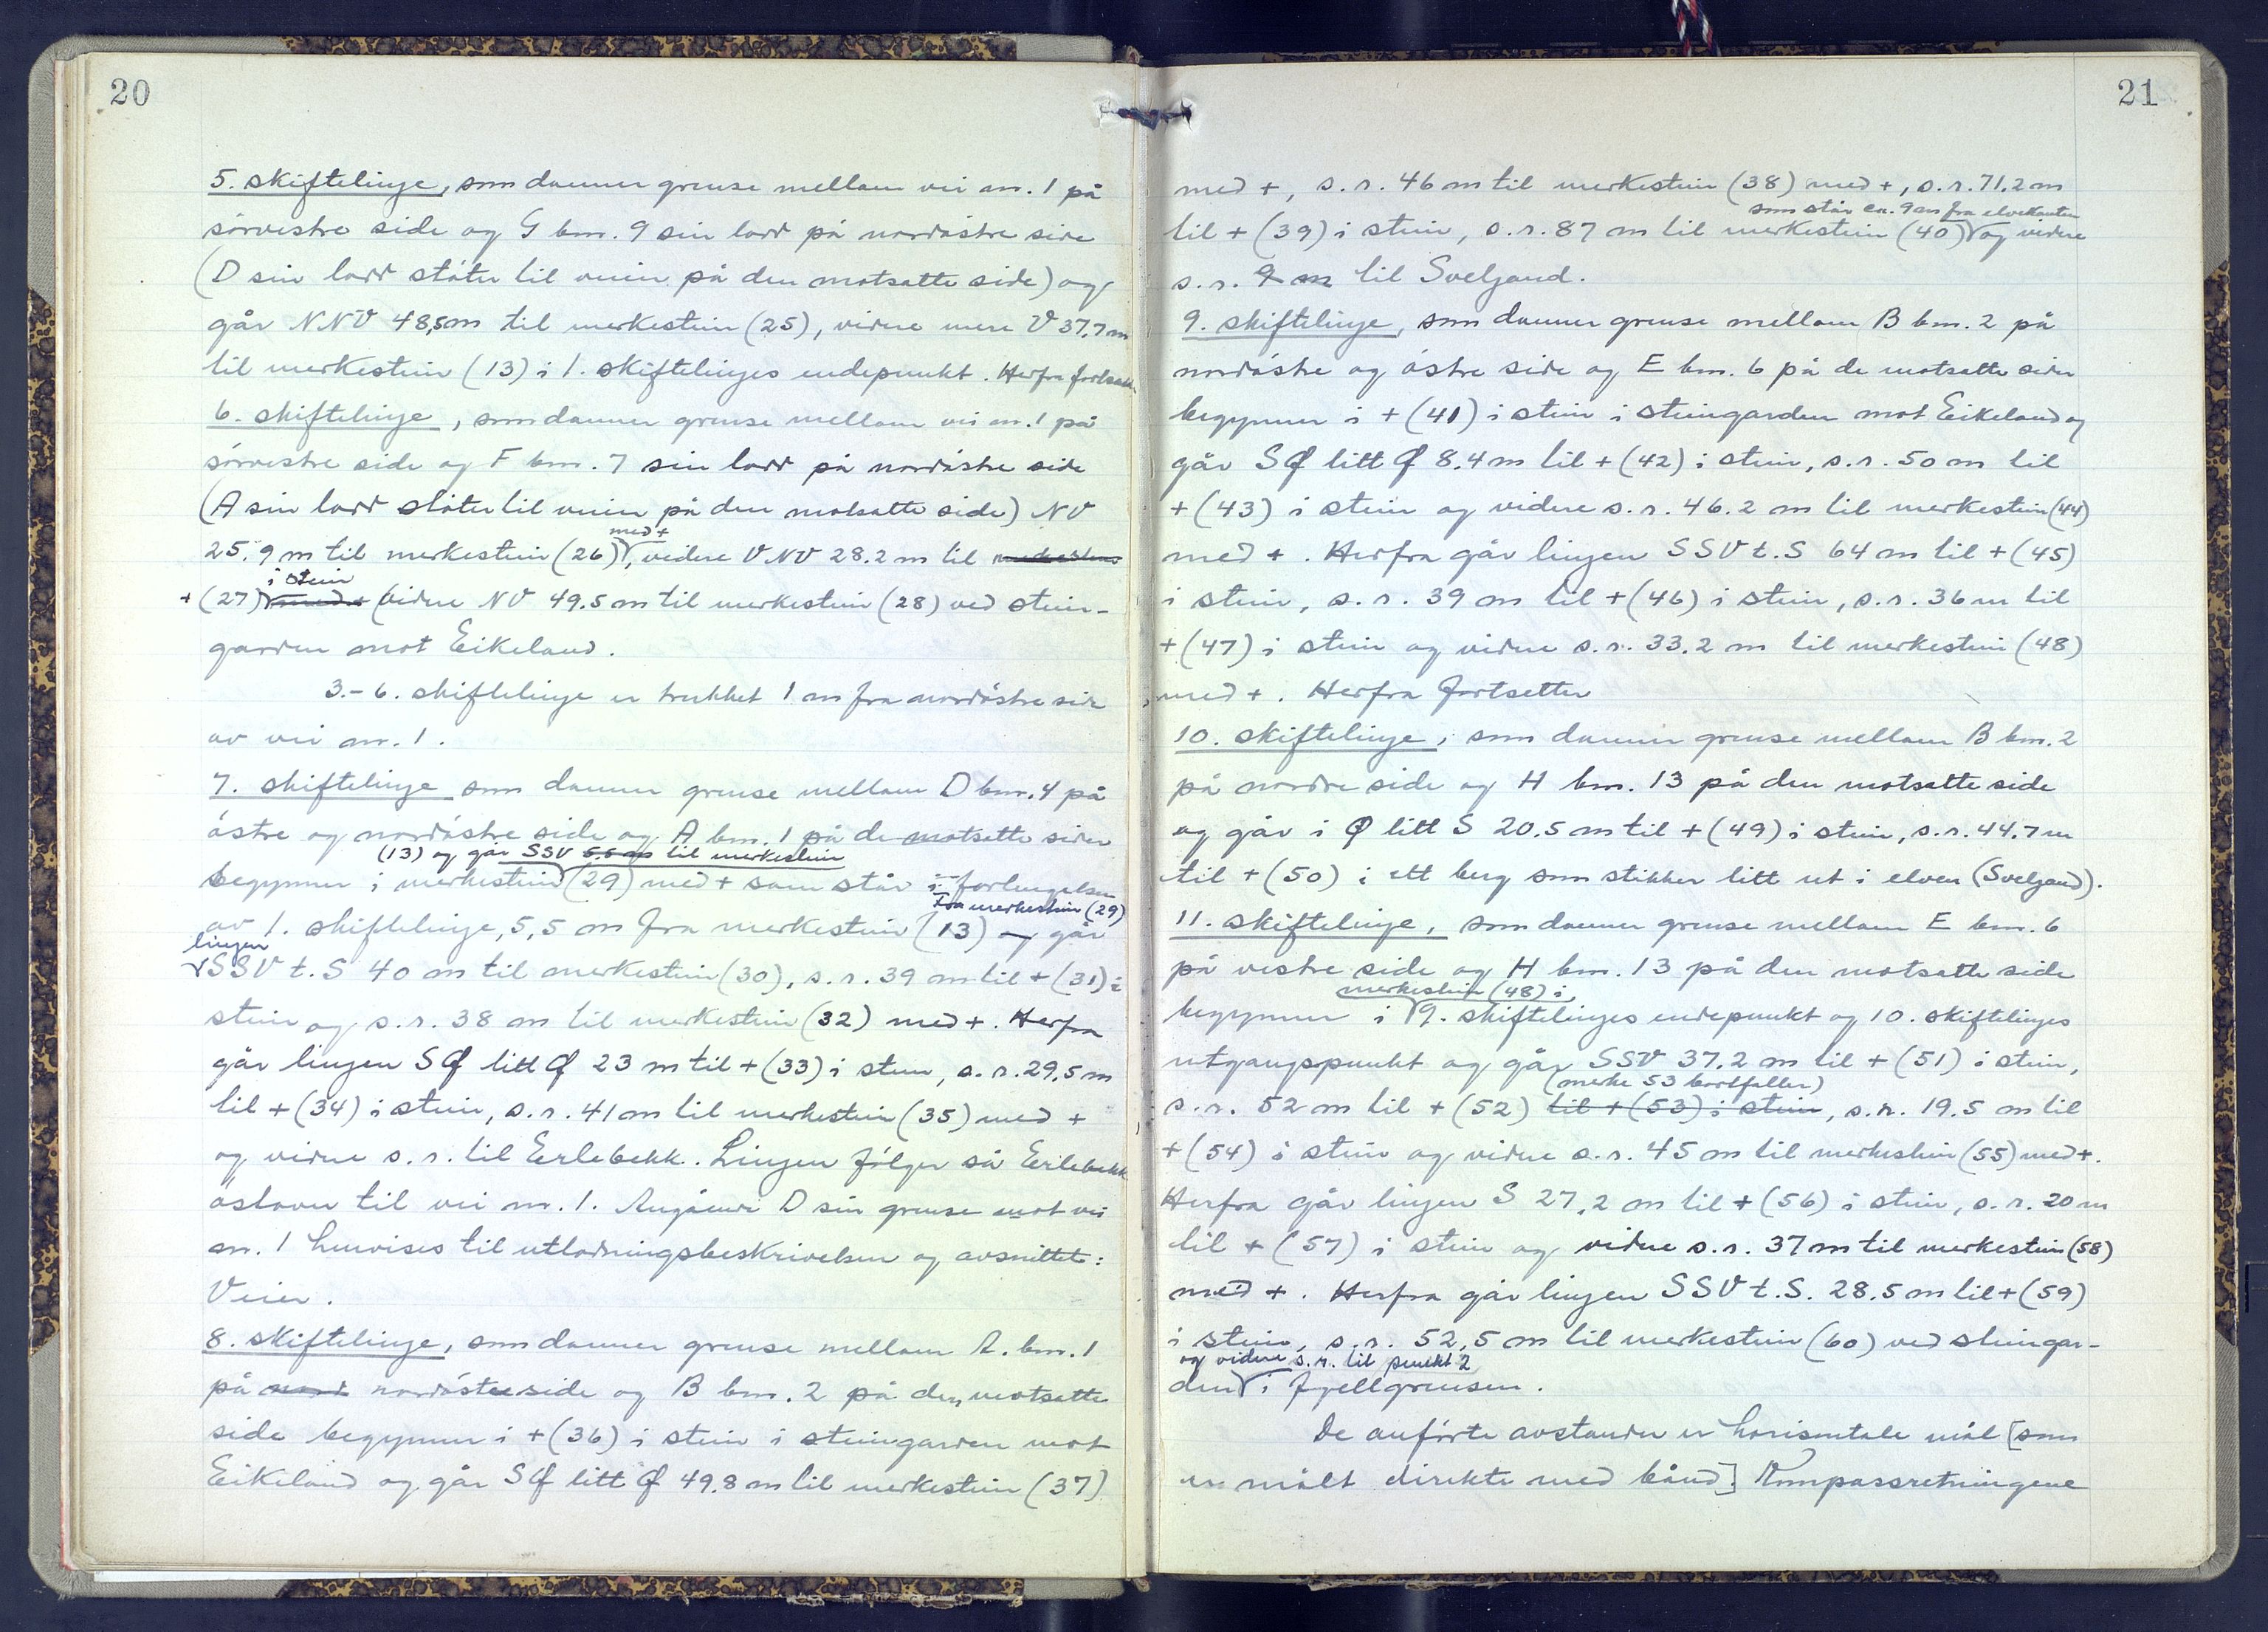 20
5. skiftelinje, som danner grense mellom vei nr. 1 på
sörvestre side og G bnr. 9 sin lodd på nordöstre side
(D sin lodd stöter til veien på den motsatte side) og
går NNV 48,5 m til merkestein (25), videre mere V 37.7 m
til merkestein (13) i 1. skiftelinjes endepunkt. Herfra fortsetter
6. skiftelinje, som danner grense mellom vei nr. 1 på
sörvestre side og F bnr. 7 sin lodd på nordöstre side
(A sin lodd stöter til veien på den motsatte side) NV
med +
25.9 m til merkestein (26), videre VNV 28.2 m til merkestein
i stein
+ (27) med + videre NV 49.5 m til merkestein (28) ved stein-
garden mot Eikeland.
3.-6. skiftelinje er trukket 1 m fra nordöstre side
av vei nr. 1.
7. skiftelinje som danner grense mellom D bnr. 4 på
östre og nordöstre side og A bnr. 1 på de motsatte sider
(13) og går SSV 5.5 m til merkestein
begynner i merkestein (29) med + som står i forlengelsen
Fra merkestein (29)
av 1. skiftelinje, 5,5 m fra merkestein (13) og går
linjen
SSV t. S 40 m til merkestein (30), s.r. 39 m til + (31) i
stein og s.r. 38 m til merkestein (32) med +. Herfra
går linjen SØ litt Ø 23 m til + (33) i stein, s.r. 29,5 m
til + (34) i stein, s.r. 41 m til merkestein (35) med +
og videre s.r. til Erlebekk. Linjen fölger så Erlebekk
östover til vei nr. 1. Angående D sin grense mot vei
nr. 1 henvises til utlodningsbeskrivelsen og avsnittet:
Veier.
8. skiftelinje, som danner grense mellom A. bnr. 1
på nord nordöstre side og B bnr. 2 på den motsatte
side begynner i + (36) i stein i steingarden mot
Eikeland og går SØ litt Ø 49.8 m til merkestein (37)
21
med +, s.r. 46 m til merkestein (38) med +, s.r. 71.2 m
som står ca. 9 m fra elvekanten
til + (39) i stein, s.r. 87 m til merkestein (40) og videre
s.r. 9 m til Sveljaand.
9. skiftelinje, som danner grense mellom B bnr. 2 på
nordöstre og östre side og E bnr. 6 på de motsatte sider
begynner i + (41) i stein i steingarden mot Eikeland og
går SØ litt Ø 8.4 m til + (42) i stein, s.r. 50 m til
+ (43) i stein og videre s.r. 46.2 m til merkestein (44)
med +. Herfra går linjen SSV t. S 64 m til + (45)
i stein, s.r. 39 m til + (46) i stein, s.r. 36 m til
+ (47) i stein og videre s.r. 33.2 m til merkestein (48)
med +. Herfra fortsetter
10. skiftelinje, som danner grense mellom B bnr. 2
på nordre side og H bnr. 13 på den motsatte side
og går i Ø litt S 20.5 m til + (49) i stein, s.r. 44.7 m
til + (50) i ett berg som stikker litt ut i elven (Sveljaand).
11. skiftelinje, som danner grense mellom E bnr. 6
på vestre side og H bnr. 13 på den motsatte side
merkestein (48) i
begynner i 9. skiftelinjes endepunkt og 10. skiftelinjes
utgangspunkt og går SSV 37.2 m til + (51) i stein,
(merke 53 bortfaller)
s.r. 52 m til + (52) til + (53) i stein, s.r. 19.5 m til
+ (54) i stein og videre s.r. 45 m til merkestein (55) med +.
Herfra går linjen S 27.2 m til + (56) i stein, s.r. 20 m
til + (57) i stein og videre s.r. 37 m til merkestein (58)
med +. Herfra går linjen SSV t. S. 28.5 m til + (59)
i stein, s.r. 52,5 m til merkestein (60) ved steingar-
og videre s.r. til punkt 2
den i fjellgrensen.
De anförte avstander er horisontale mål [som
er målt direkte med bånd]. Kompassretningene